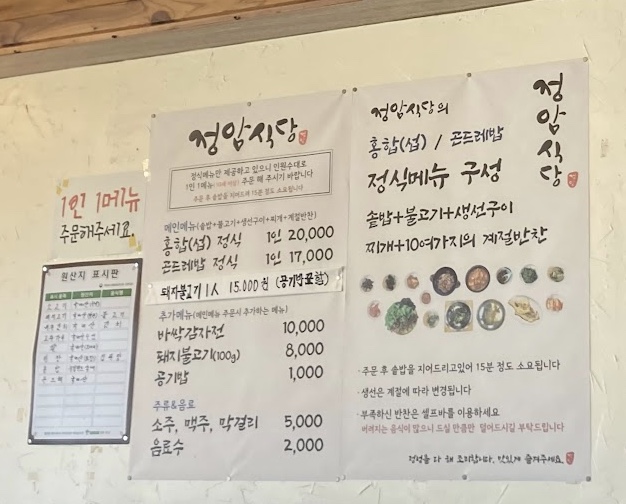 정암식당
정식메뉴만 제공하고 있으니 인원수대로
1인 1메뉴 주문 해 주시기 바랍니다
주문 후 솥밥을 지어드려 15분 정도 소요됩니다
메인메뉴(솥밥+불고기+생선구이+찌개+계절반찬)
홍합(섭) 정식 1인 20,000
곤드레밥 정식 1인 17,000
돼지불고기 1人 15.000원 (공기밥포함)
추가메뉴(메인메뉴 주문시 추가하는 메뉴)
바싹감자전 10,000
돼지불고기(100g) 8,000
공기밥 1,000
주류&음료
소주, 맥주, 막걸리 5,000
음료수 2,000
정암식당의
홍합(섭) / 곤드레밥
정식메뉴 구성
솥밥+불고기+생선구이
찌개+10여가지의 계절반찬
정암식당
· 주문 후 솥밥을 지어드리고있어 15분 정도 소요됩니다
· 생선은 계절에 따라 변경됩니다
· 부족하신 반찬은 셀프바를 이용하세요
버려지는 음식이 많으니 드실 만큼만 덜어드시길 부탁드립니다
정성을 다 해 조리합니다. 맛있게 즐겨주세요.
1인 1메뉴
주문해주세요.
원산지 표시판